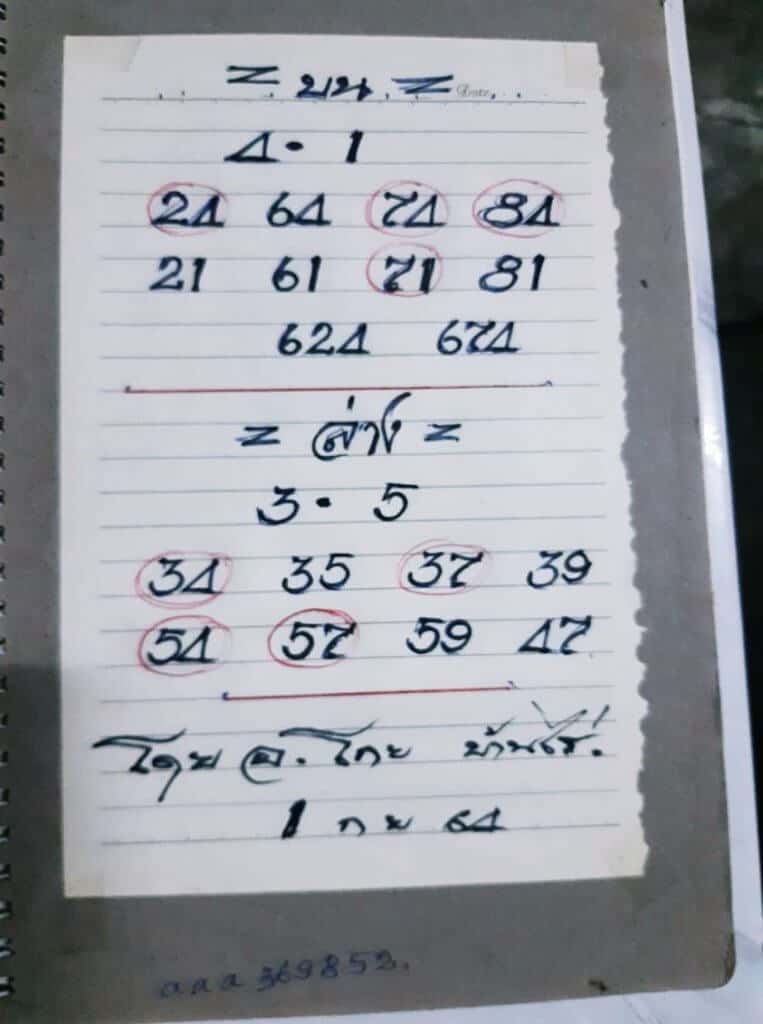 = บน = Date
4 • 1
24 64 74 84
21 61 71 81
624 674
= ล่าง =
3 • 5
34 35 37 39
54 57 59 47
โดย อ. โกย บ้านไร่.
1 กย 64
aaa 369852.